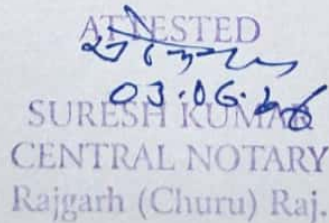 ATTESTED
03.06.26
SURESH KUMAR
CENTRAL NOTARY
Rajgarh (Churu) Raj.